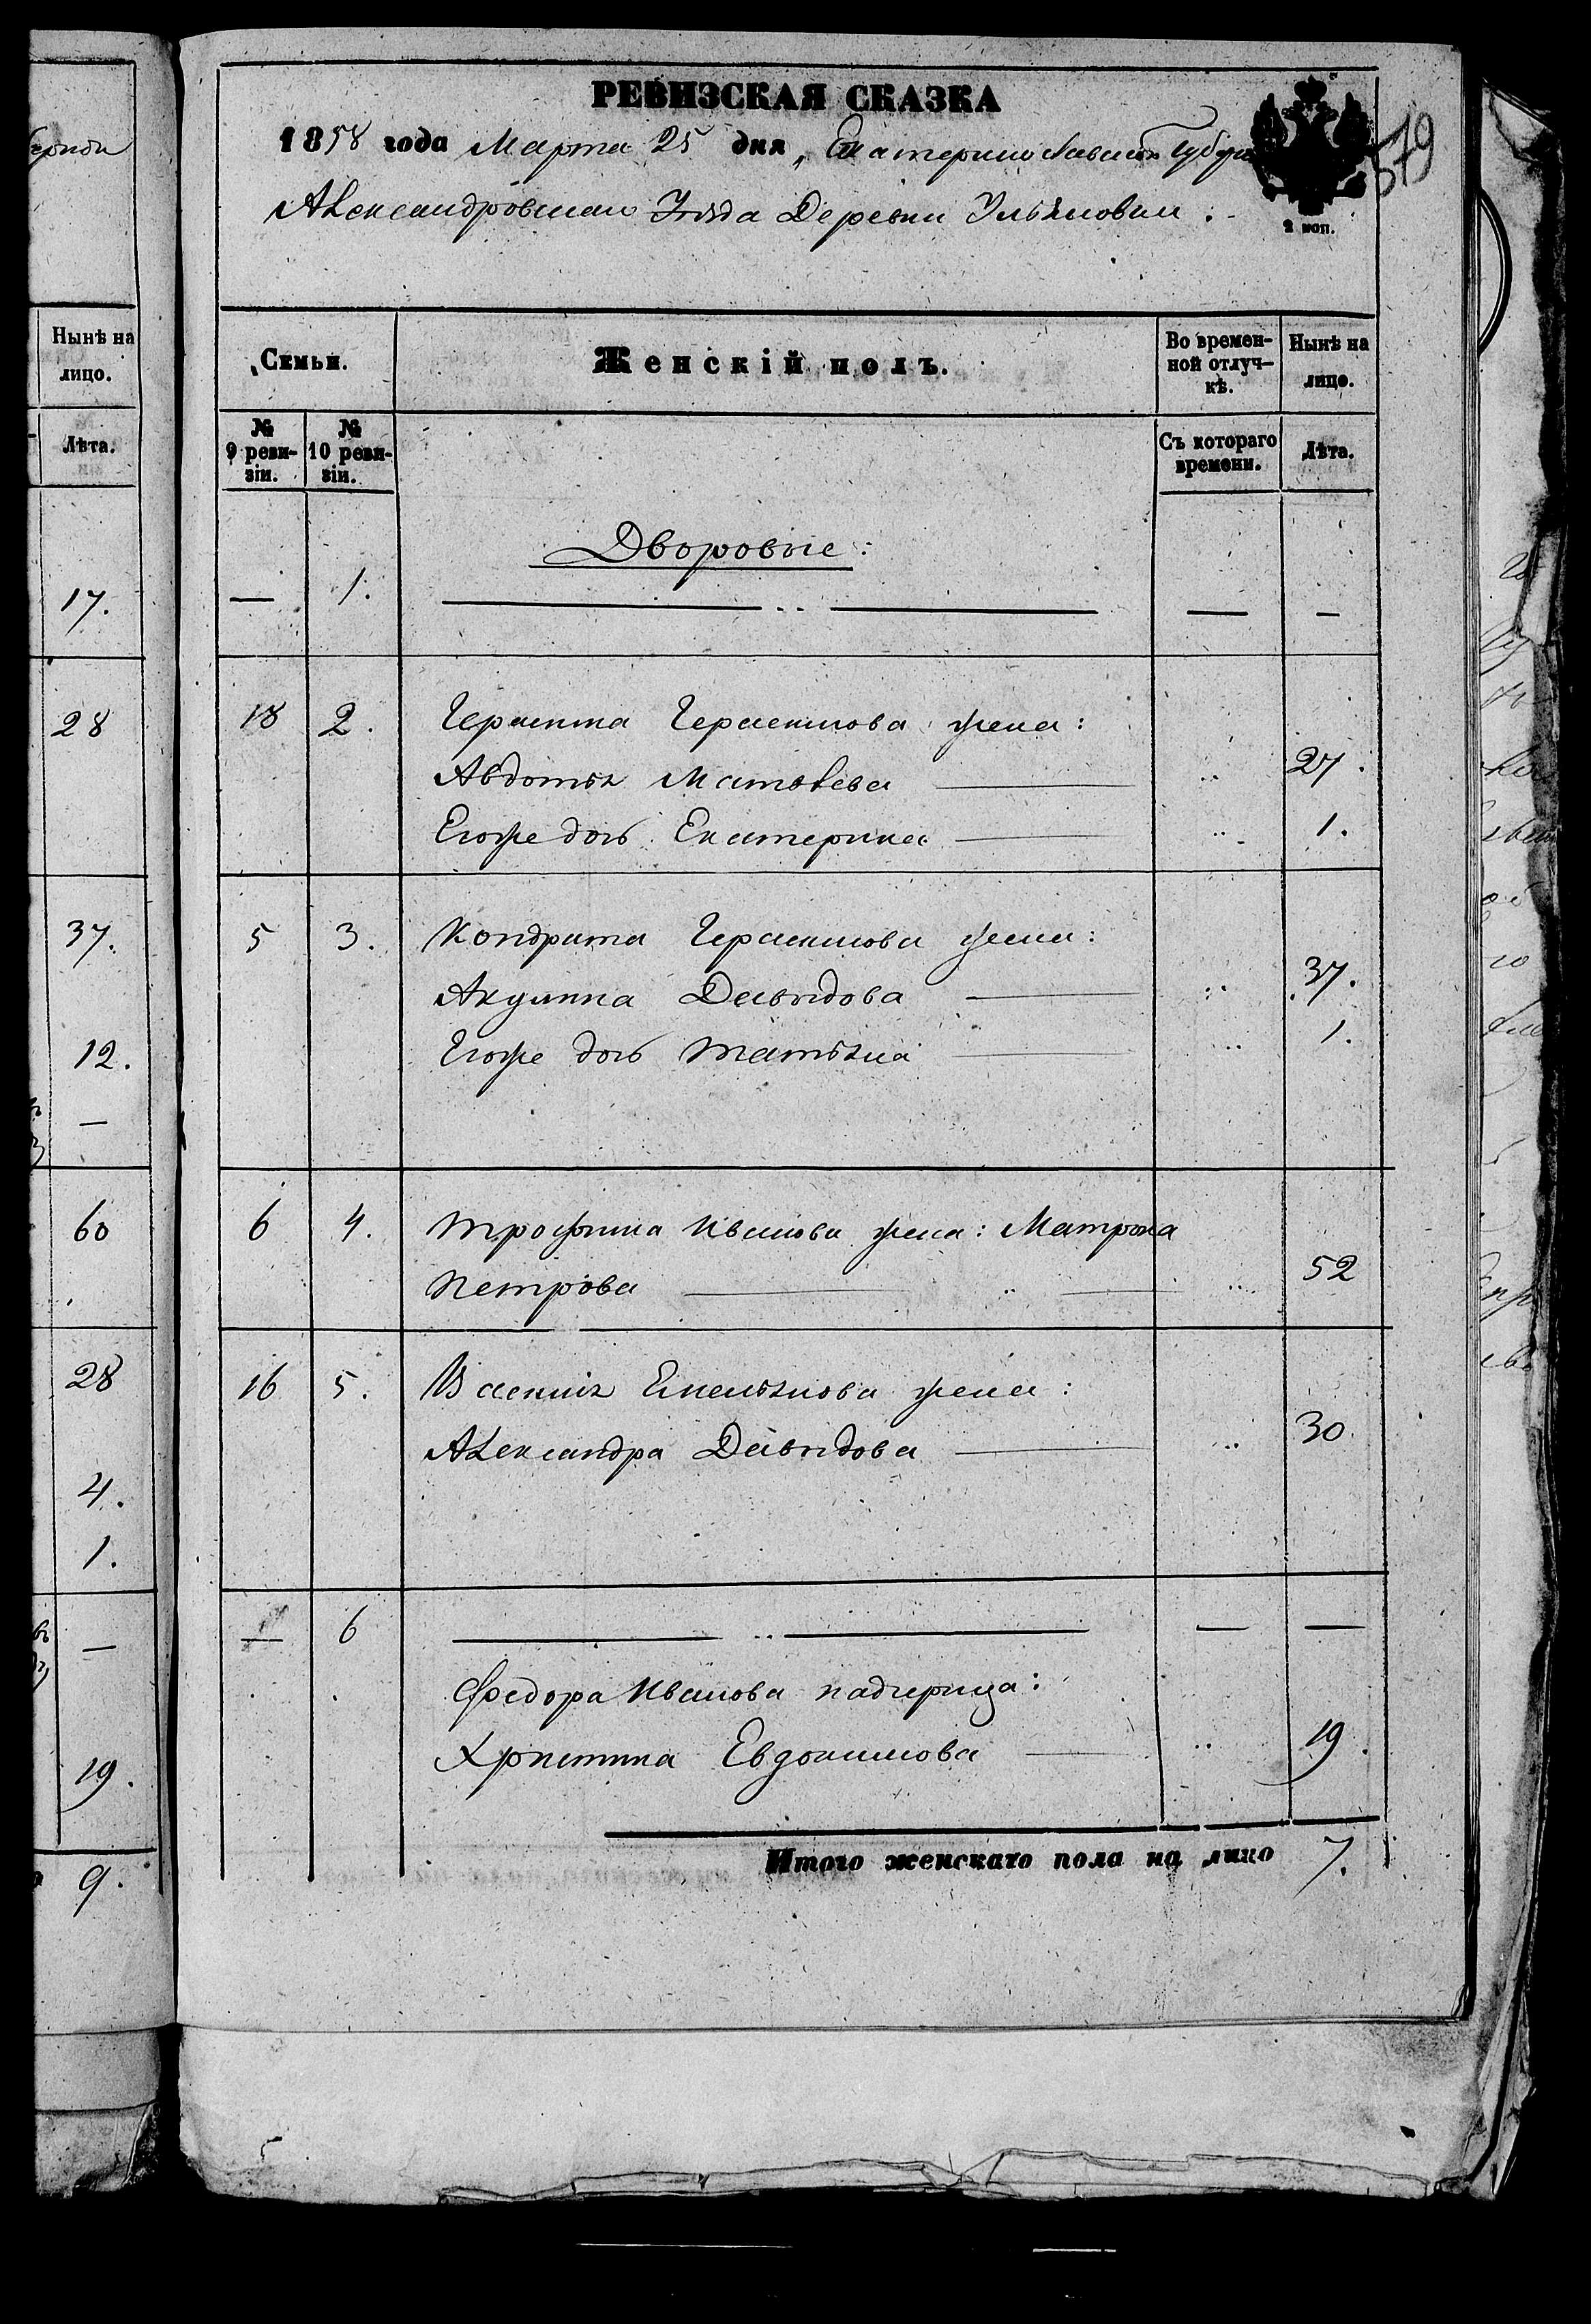 РЕВИЗСКАЯ СКАЗКА
1858 года Марта 25 дня, Екатеринославской Губерн
579
Александровскаго Уѣзда Деревни Ульяновки.
2 коп.
Нынѣ на лицо.
Лѣта.
17.
28
37.
12.
—
60
28
4.
1.
—
19.
9.
Семьи.
Женскій полъ.
Во времен-
ной отлуч-
кѣ.
Нынѣ на
лицо.
№
9 реви-
зіи.
№
10 реви-
зіи.
Съ котораго
времени.
Лѣта.
Дворовые:
— 1. — „ — — —
18 2. Герасима Герасимова жена:
Авдотья Матвѣева — „ 27.
Егоже дочь Екатерина — „ 1.
5 3. Кондрата Герасимова жена:
Акулина Давыдова — „ 37.
Егоже дочь Татьяна — „ 1.
6 4. Трофима Иванова жена: Матрона
Петрова — „ — „ 52
16 5. Василия Емельянова жена:
Александра Давыдова — „ 30.
— 6 — „ — — —
Федора Иванова падчерица:
Христина Евдокимова — „ 19.
Итого женскаго пола на лицо 7.